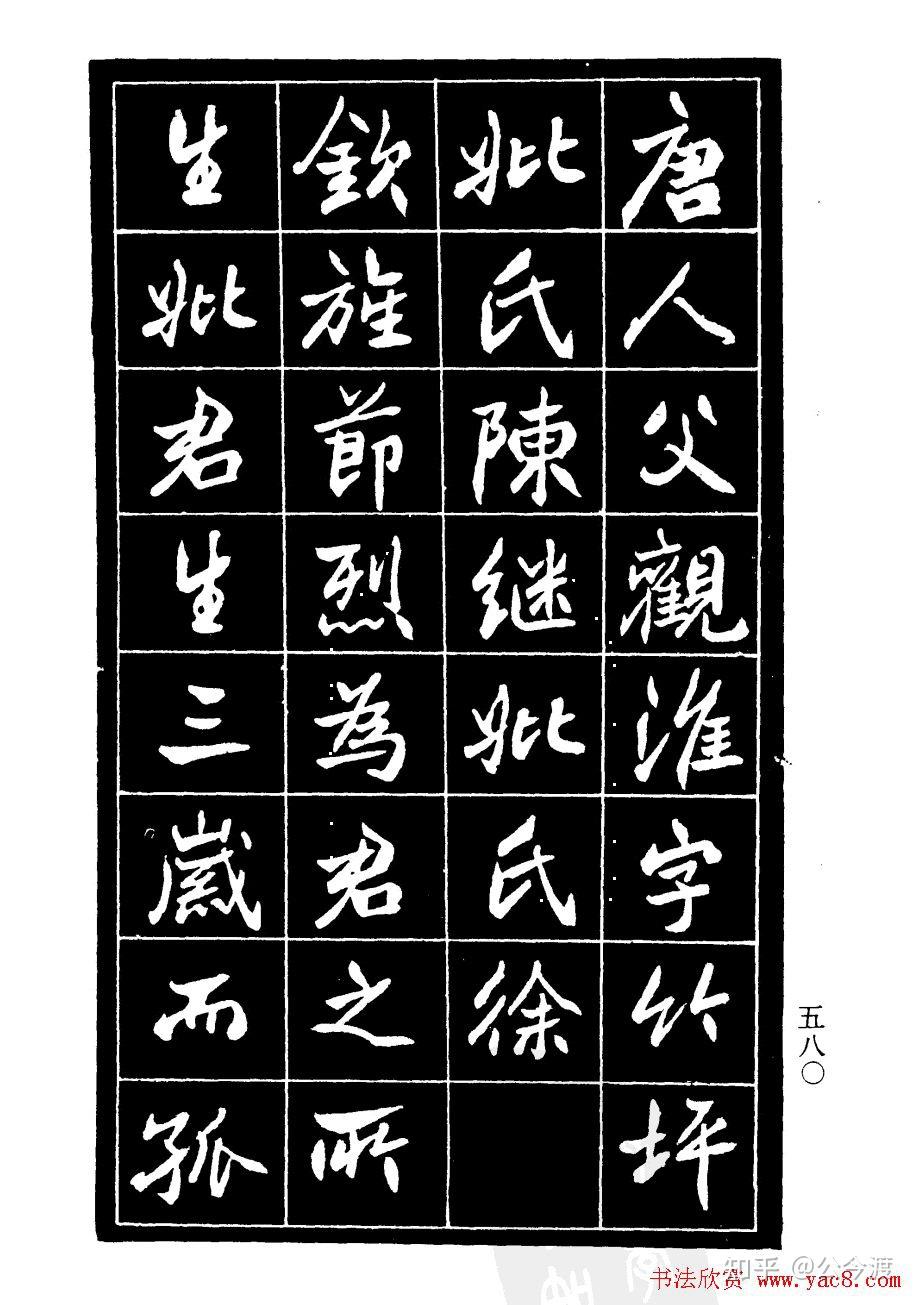 唐人父觀淮字竹坪
妣氏陳继妣氏徐
欽旌節烈為君之所
生妣君生三嵗而孤
五八〇
知乎 @公今渡
书法欣赏 www.yac8.com